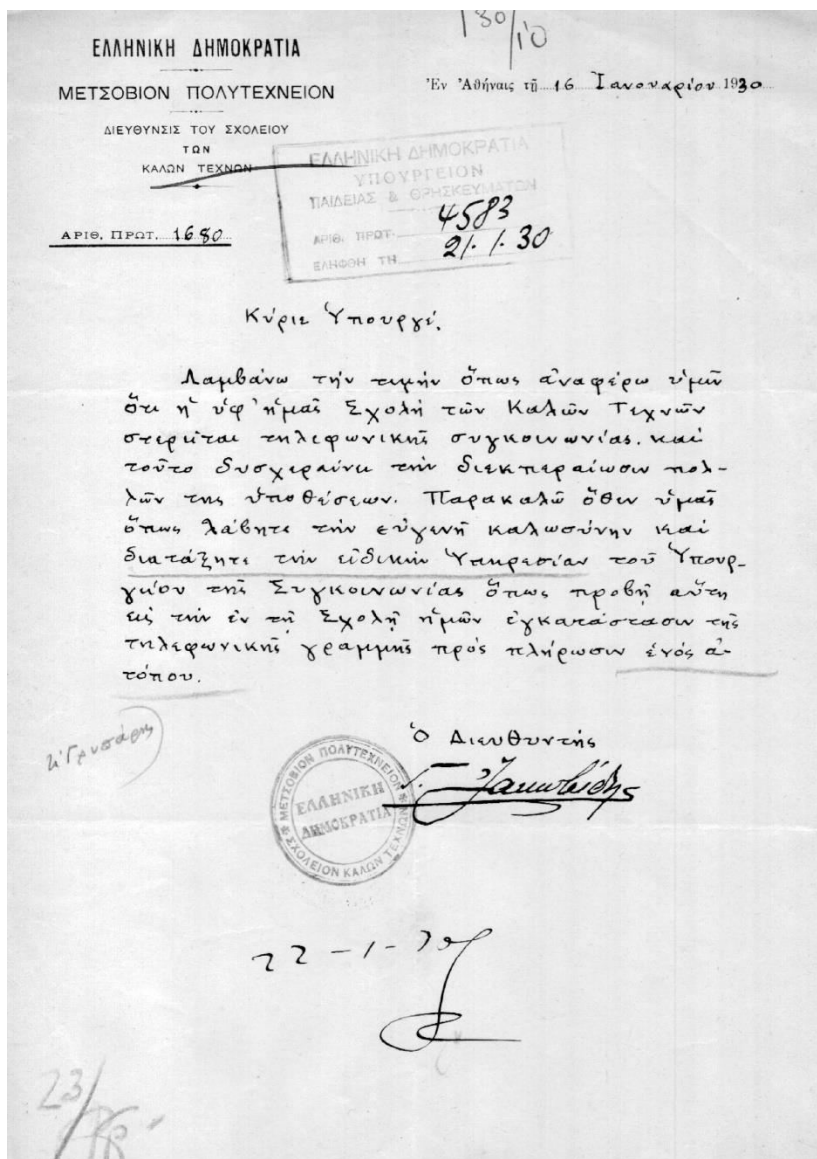 180/10
ΕΛΛΗΝΙΚΗ ΔΗΜΟΚΡΑΤΙΑ
ΜΕΤΣΟΒΙΟΝ ΠΟΛΥΤΕΧΝΕΙΟΝ
ΔΙΕΥΘΥΝΣΙΣ ΤΟΥ ΣΧΟΛΕΙΟΥ
ΤΩΝ
ΚΑΛΩΝ ΤΕΧΝΩΝ
Ἐν Ἀθήναις τῇ 16 Ἰανουαρίου 1930
ΕΛΛΗΝΙΚΗ ΔΗΜΟΚΡΑΤΙΑ
ΥΠΟΥΡΓΕΙΟΝ
ΠΑΙΔΕΙΑΣ & ΘΡΗΣΚΕΥΜΑΤΩΝ
ΑΡΙΘ. ΠΡΩΤ. 4583
ΕΛΗΦΘΗ ΤΗ 21.1.30
ΑΡΙΘ. ΠΡΩΤ. 1680
Κύριε Ὑπουργέ.
Λαμβάνω τήν τιμήν ὅπως ἀναφέρω ὑμῖν
ὅτι ἡ ὑφ' ἡμᾶς Σχολή τῶν Καλῶν Τεχνῶν
στερεῖται τηλεφωνικῆς συγκοινωνίας. καί
τοῦτο δυσχεραίνει τήν διεκπεραίωσιν πολ-
λῶν της ὑποθέσεων. Παρακαλῶ ὅθεν ὑμᾶς
ὅπως λάβητε τήν εὐγενῆ καλωσύνην καί
διατάξητε τήν εἰδικήν Ὑπηρεσίαν τοῦ Ὑπουρ-
γείου τῆς Συγκοινωνίας ὅπως προβῇ αὕτη
εἰς τήν ἐν τῇ Σχολῇ ἡμῶν ἐγκατάστασιν τῆς
τηλεφωνικῆς γραμμῆς πρός πλήρωσιν ἑνός ἀ-
τόπου.
Ὁ Διευθυντής
Γ. Ἰακωβίδης
ΜΕΤΣΟΒΙΟΝ ΠΟΛΥΤΕΧΝΕΙΟΝ
ΣΧΟΛΕΙΟΝ ΚΑΛΩΝ ΤΕΧΝΩΝ
ΕΛΛΗΝΙΚΗ
ΔΗΜΟΚΡΑΤΙΑ
22-1-30
23/